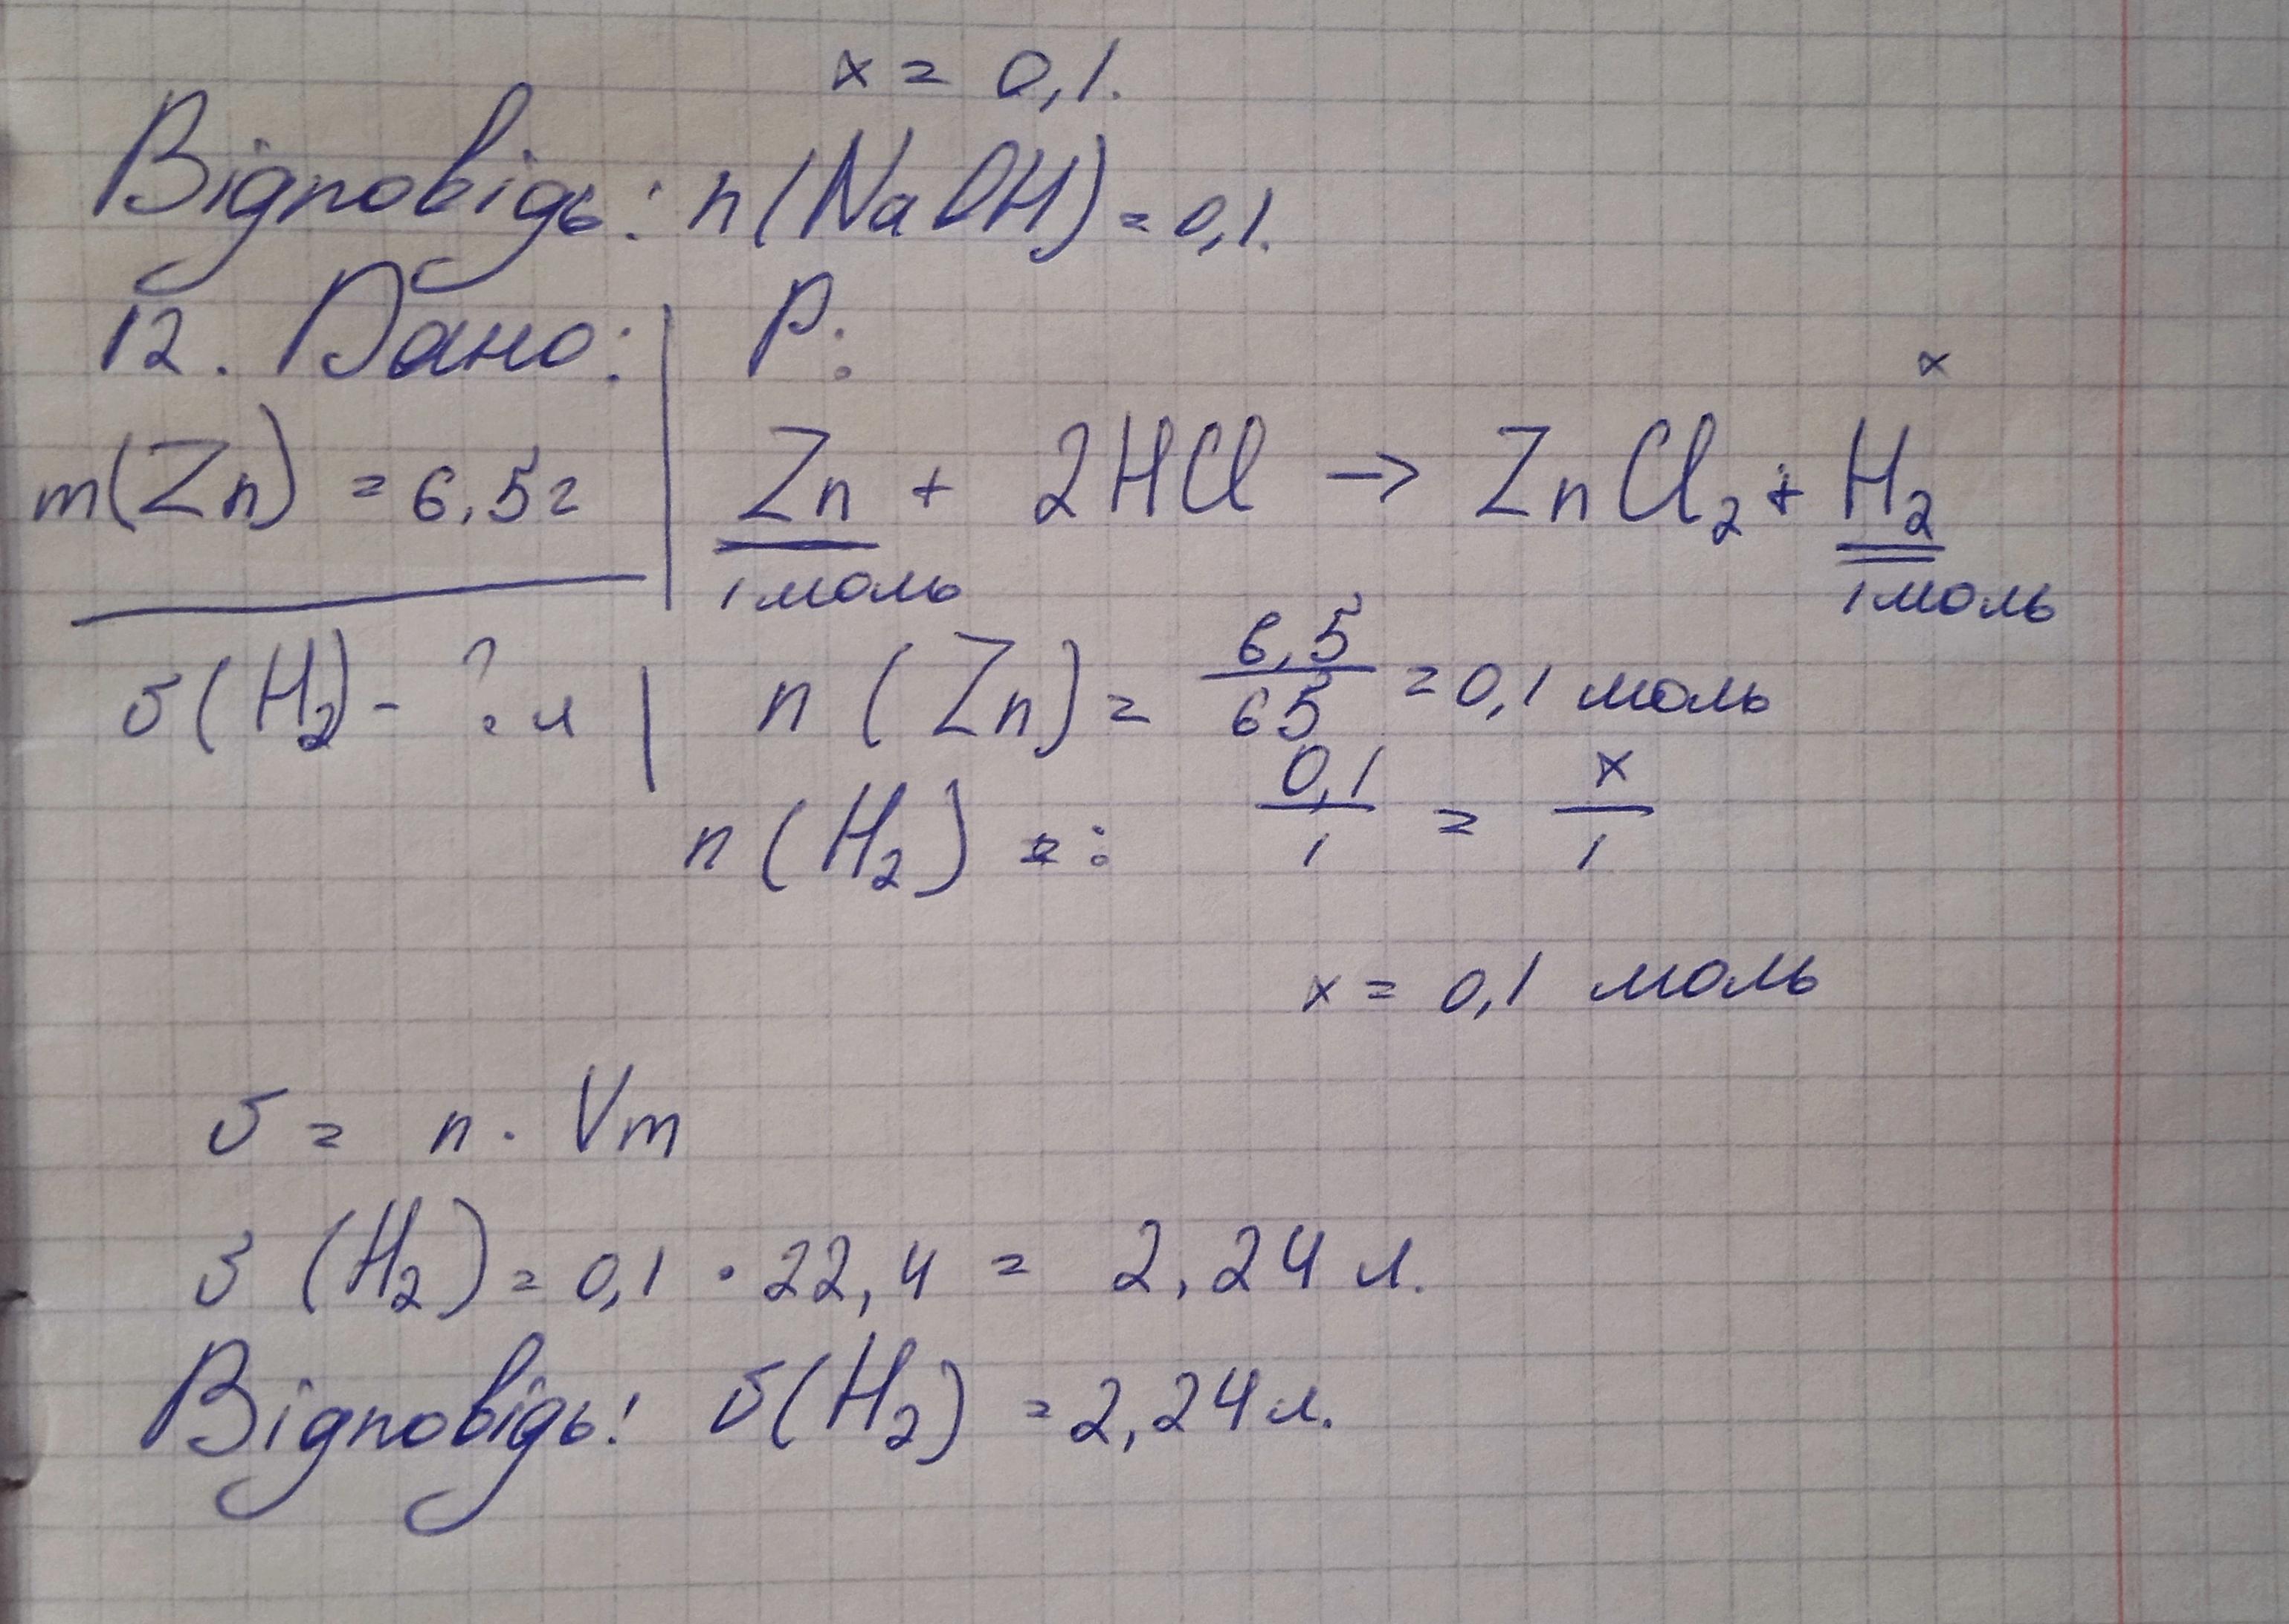 x = 0,1.
Відповідь: n(NaOH) = 0,1.
12. Дано: | Р:
x
m(Zn) = 6,5г | Zn + 2HCl → ZnCl₂ + H₂
1 моль 1 моль
υ(H₂) - ? л | n(Zn) = 6,5/65 = 0,1 моль
n(H₂) : 0,1/1 = x/1
x = 0,1 моль
υ = n · Vm
υ(H₂) = 0,1 · 22,4 = 2,24 л.
Відповідь: υ(H₂) = 2,24 л.